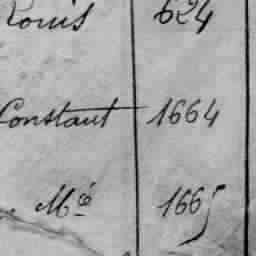 Louis 624
Constant 1664
Mcé 1665